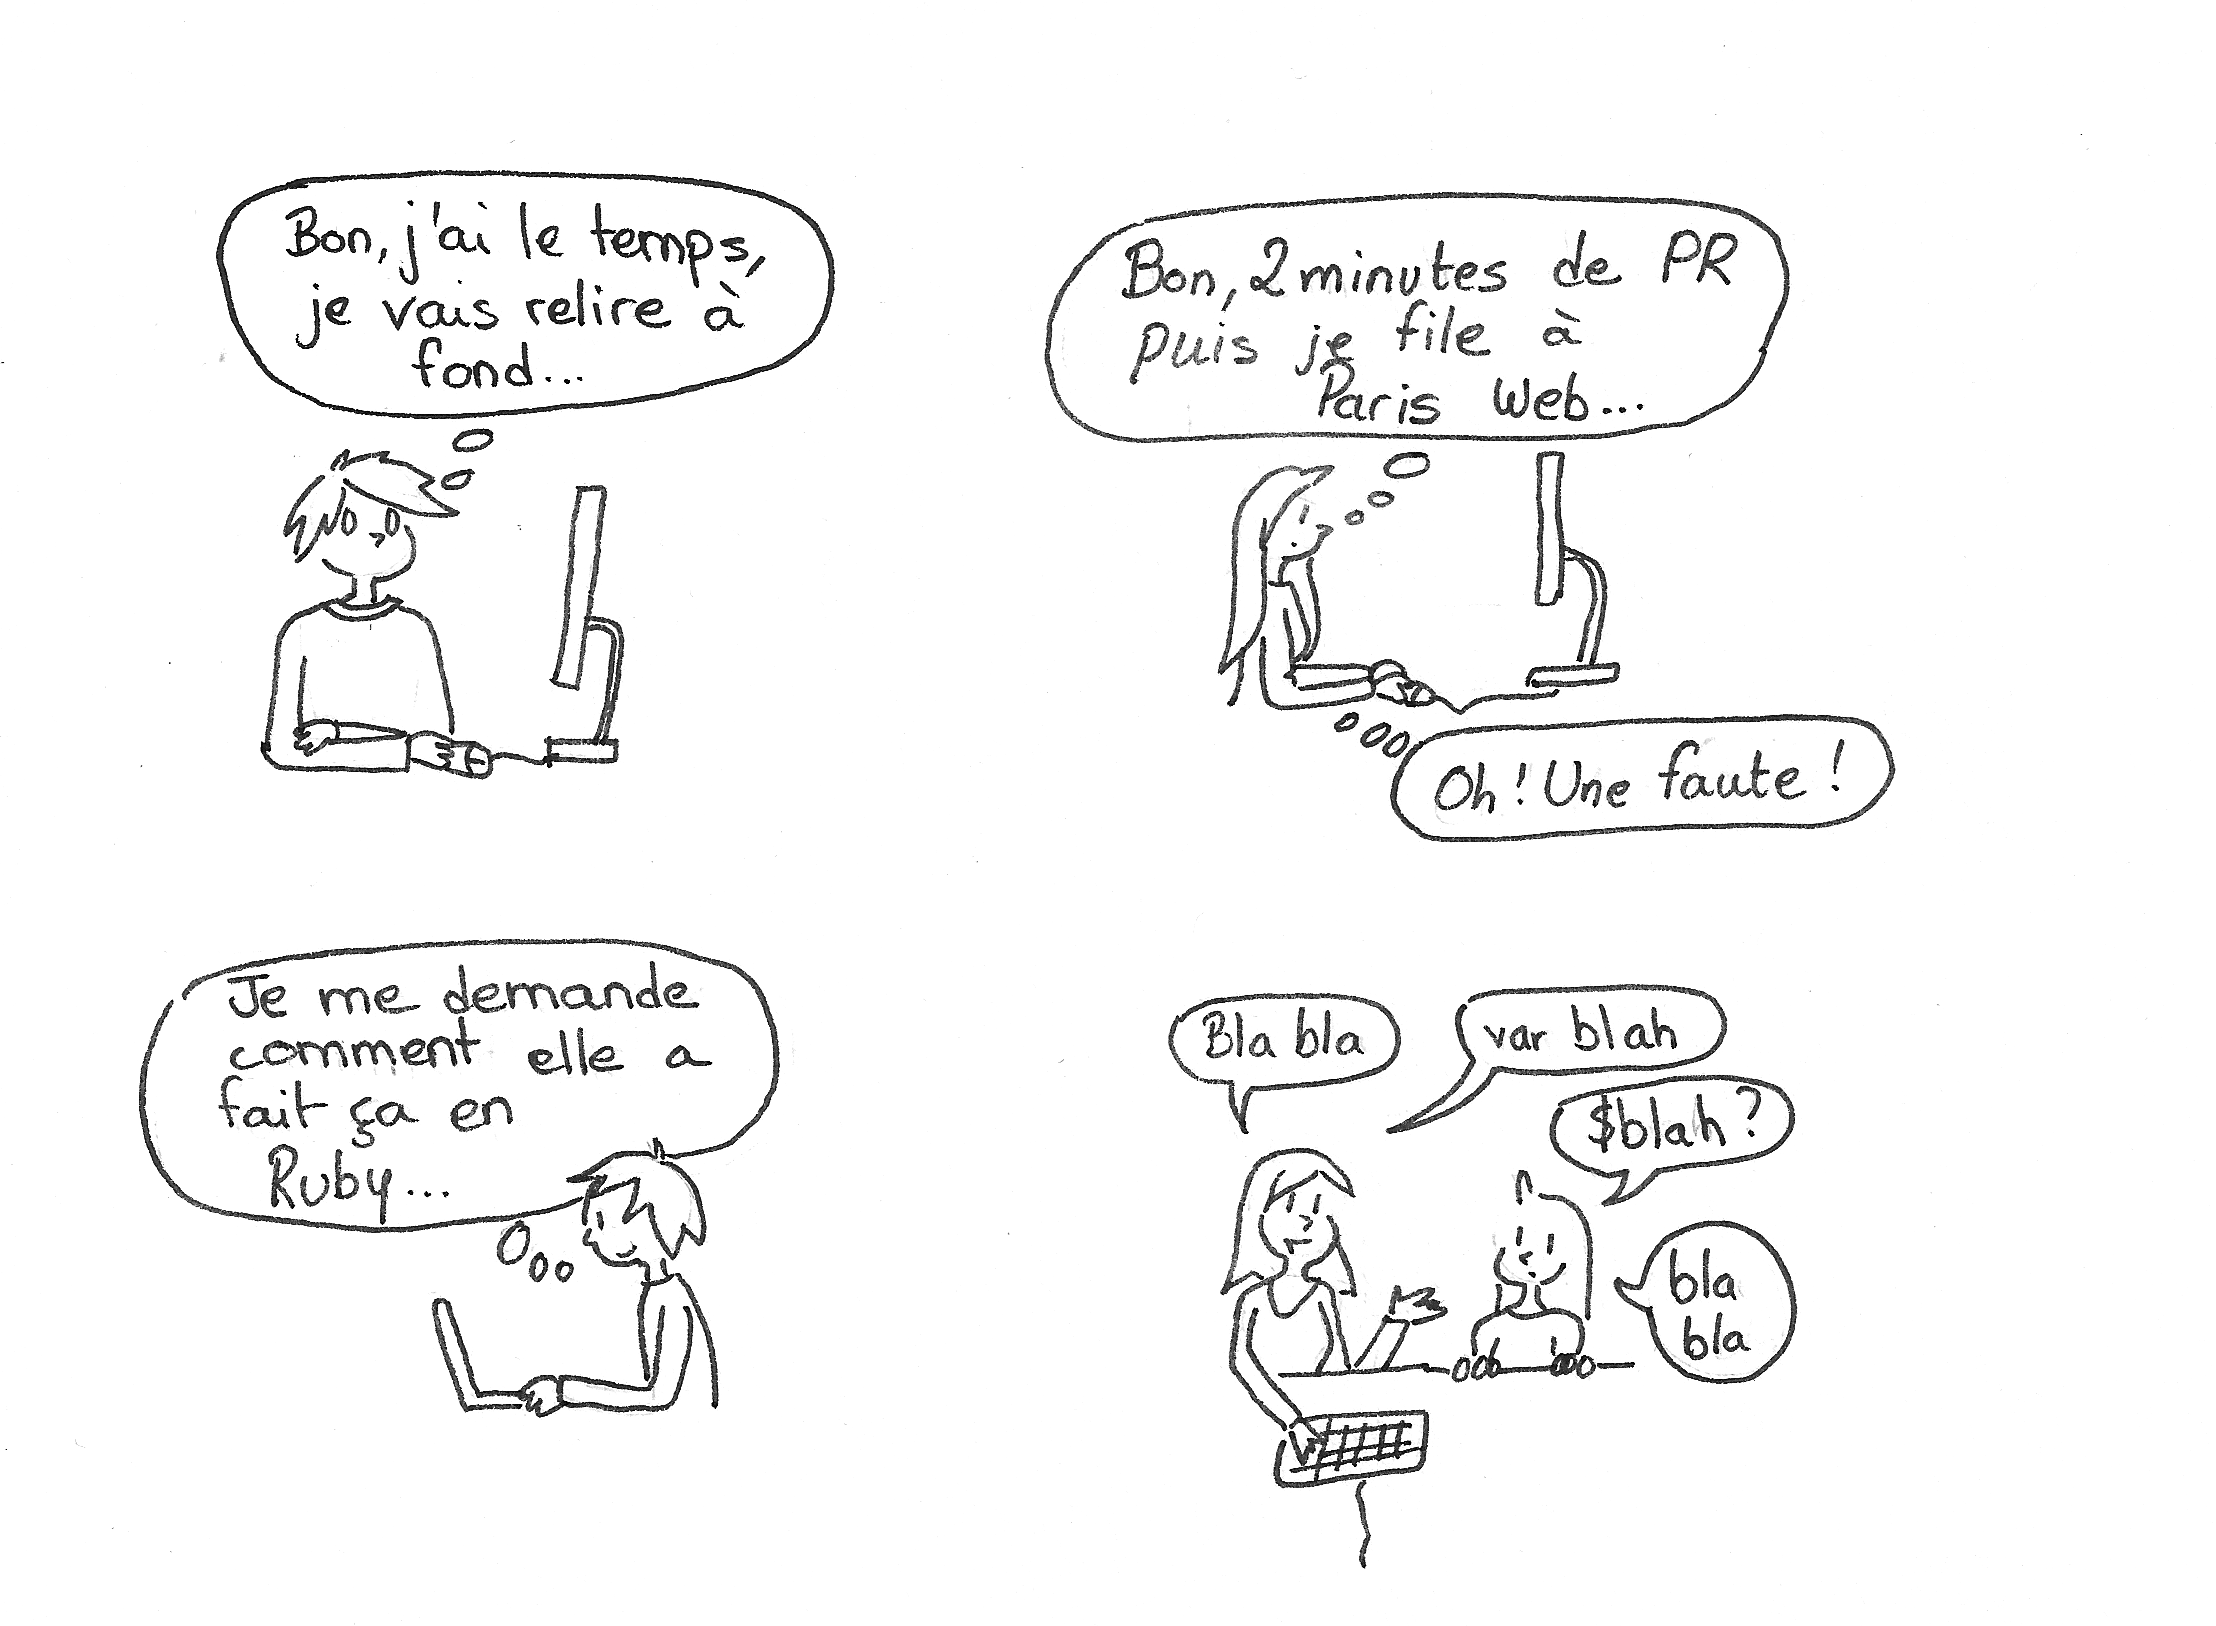 Bon, j'ai le temps,
je vais relire à
fond...
Bon, 2 minutes de PR
puis je file à
Paris Web...
Oh! Une faute!
Je me demande
comment elle a
fait ça en
Ruby...
Bla bla
var blah
$blah?
bla
bla